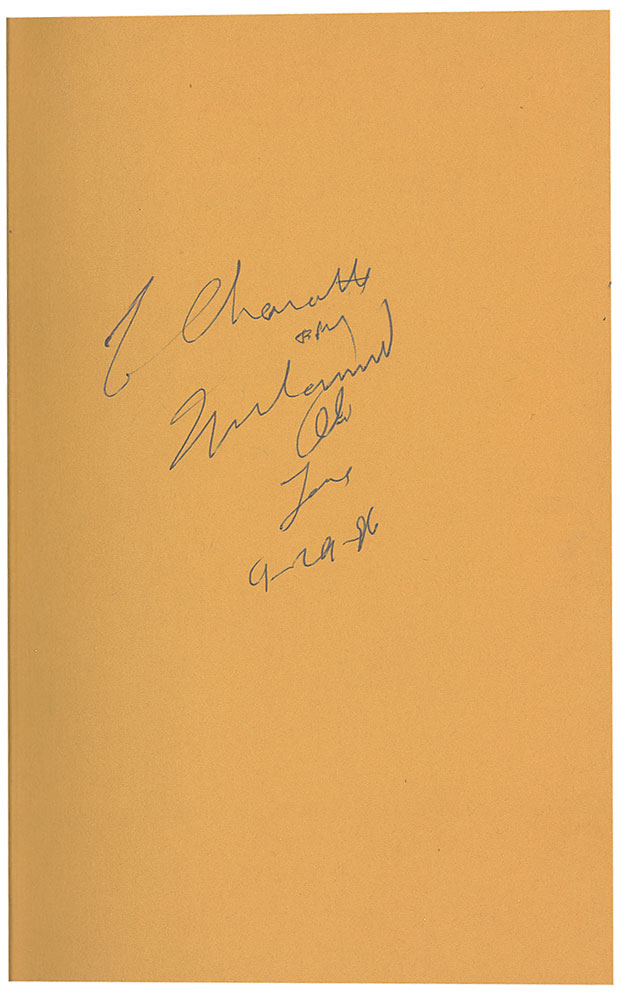 To Charlotte
Muhammad
Ali
Love
9-29-86